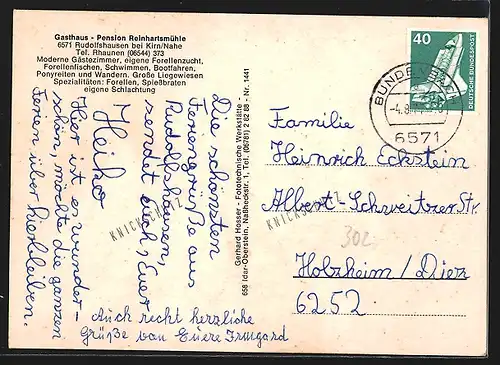 Gasthaus - Pension Reinhartsmühle
6571 Rudolfshausen bei Kirn/Nahe
Tel. Rhaunen (06544) 373
Moderne Gästezimmer, eigene Forellenzucht,
Forellenfischen, Schwimmen, Bootfahren,
Ponyreiten und Wandern. Große Liegewiesen
Spezialitäten: Forellen, Spießbraten
eigene Schlachtung
Die schönsten
Feriengrüße aus
Rudolfshausen,
sendet euch, Euer
Heiko
Hier ist es wunder-
schön, möchte die ganzen
Ferien über hierbleiben.
Auch recht herzliche
Grüße von Euere Irmgard
Gerhard Hosser - Fototechnische Werkstätte
658 Idar-Oberstein, Naßheckstr. 1, Tel. (06781) 2 62 88 - Nr. 1441
40
DEUTSCHE BUNDESPOST
BUNDENBACH
6571
Familie
Heinrich Eckstein
Albert-Schweitzer Str.
302
Holzheim / Diez
6252
KNICKSCHUTZ
KNICKSCHUTZ